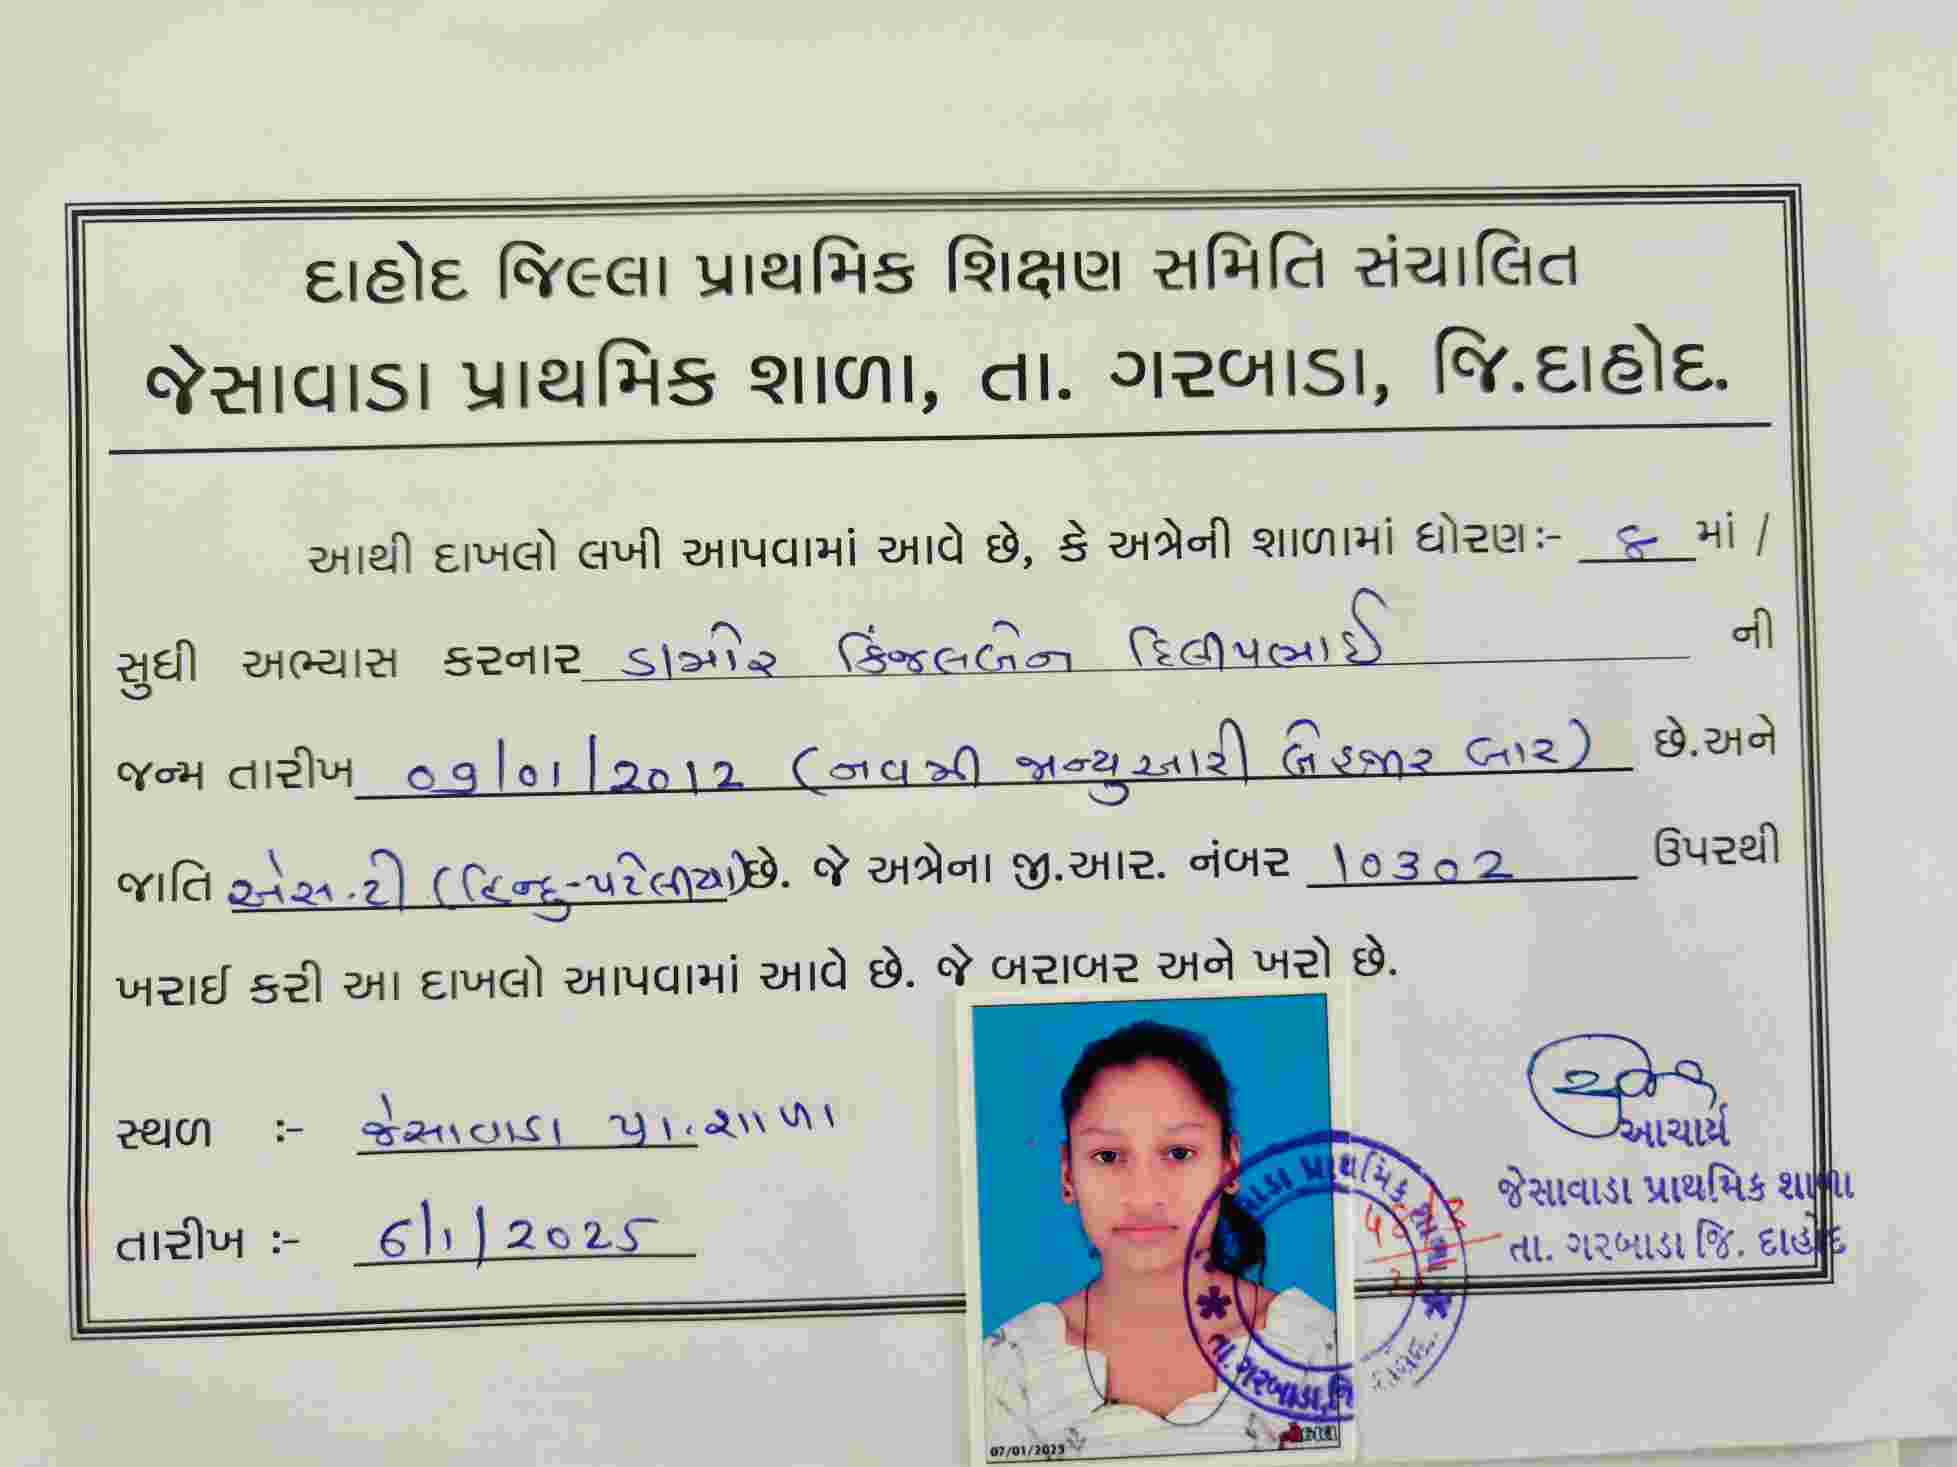 દાહોદ જિલ્લા પ્રાથમિક શિક્ષણ સમિતિ સંચાલિત
જેસાવાડા પ્રાથમિક શાળા, તા. ગરબાડા, જિ.દાહોદ.
આથી દાખલો લખી આપવામાં આવે છે, કે અત્રેની શાળામાં ધોરણ:- ૮ માં /
સુધી અભ્યાસ કરનાર ડામોર કિંજલબેન દિલીપભાઈ ની
જન્મ તારીખ 09/01/2012 (નવમી જાન્યુઆરી બેહજાર બાર) છે.અને
જાતિ એસ.ટી (હિન્દુ-પટેલીયા) છે. જે અત્રેના જી.આર. નંબર 10302 ઉપરથી
ખરાઈ કરી આ દાખલો આપવામાં આવે છે. જે બરાબર અને ખરો છે.
સ્થળ :- જેસાવાડા પ્રા.શાળા
તારીખ :- 6/1/2025
આચાર્ય
જેસાવાડા પ્રાથમિક શાળા
તા. ગરબાડા જિ. દાહોદ
વાડા પ્રાથમિક શાળા
તા. ગરબાડા, જિ
07/01/2025